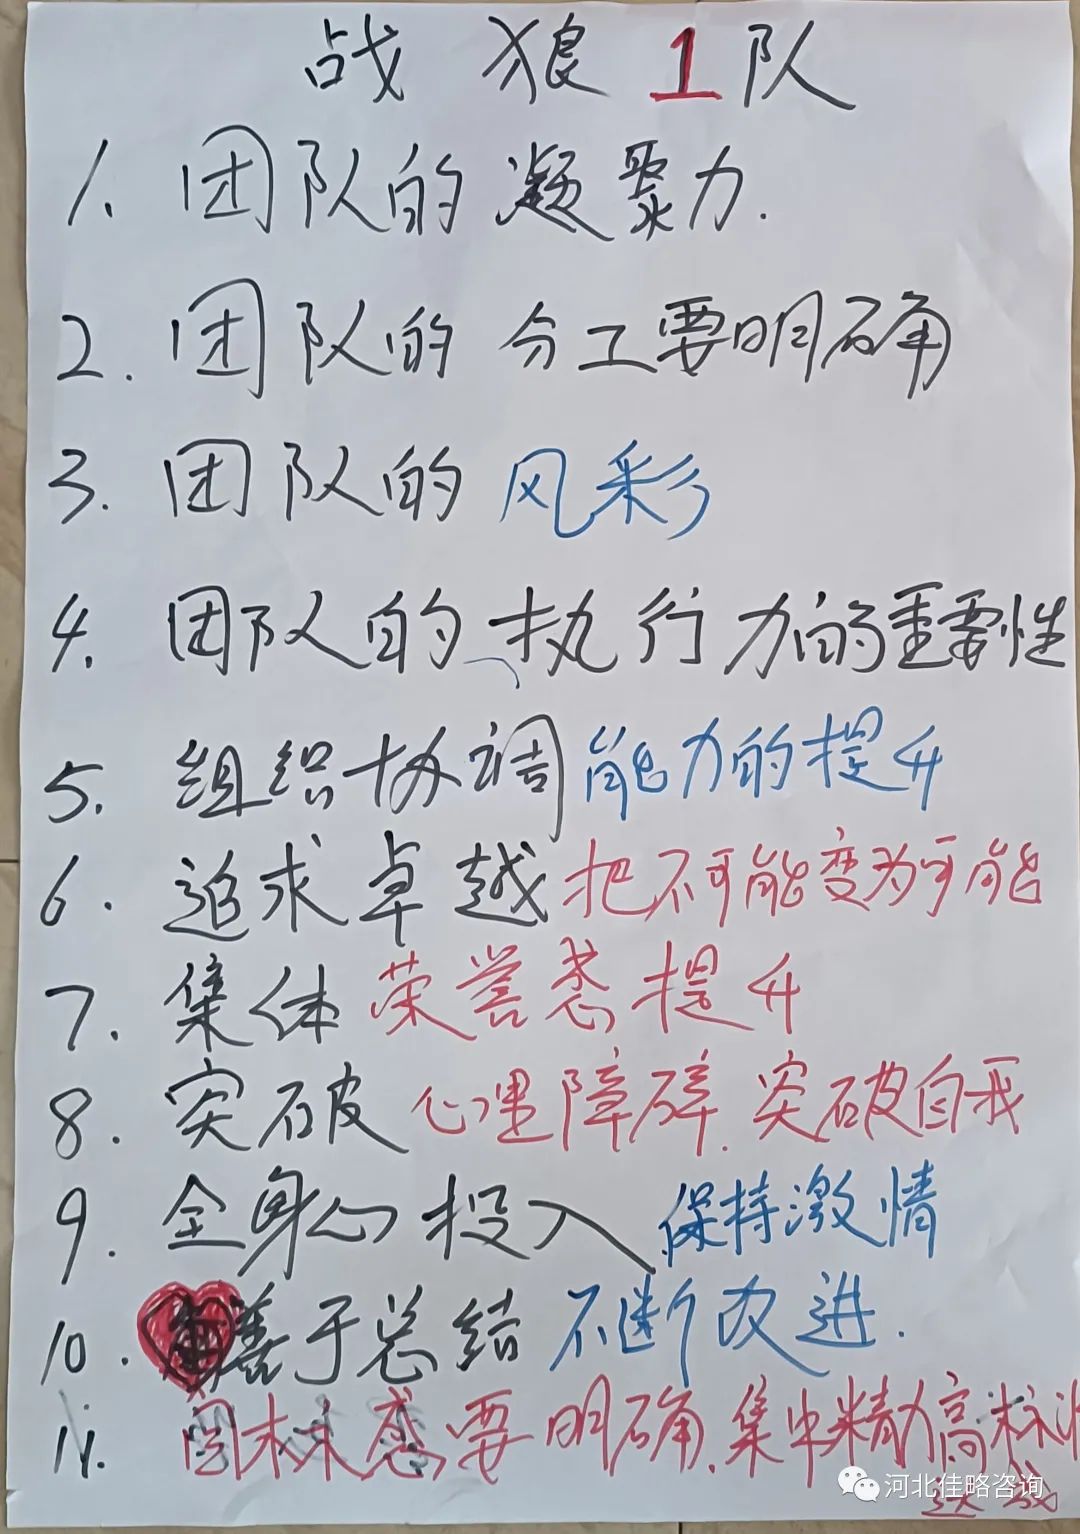 战狼1队
1. 团队的凝聚力.
2. 团队的分工要明确
3. 团队的风彩
4. 团队的执行力的重要性
5. 组织协调能力的提升
6. 追求卓越把不可能变为可能
7. 集体荣誉感提升
8. 突破心理障碍.突破自我
9. 全身心投入保持激情
10. 善于总结不断改进.
11. 目标感要明确.集中精力高标准
达成
河北佳略咨询